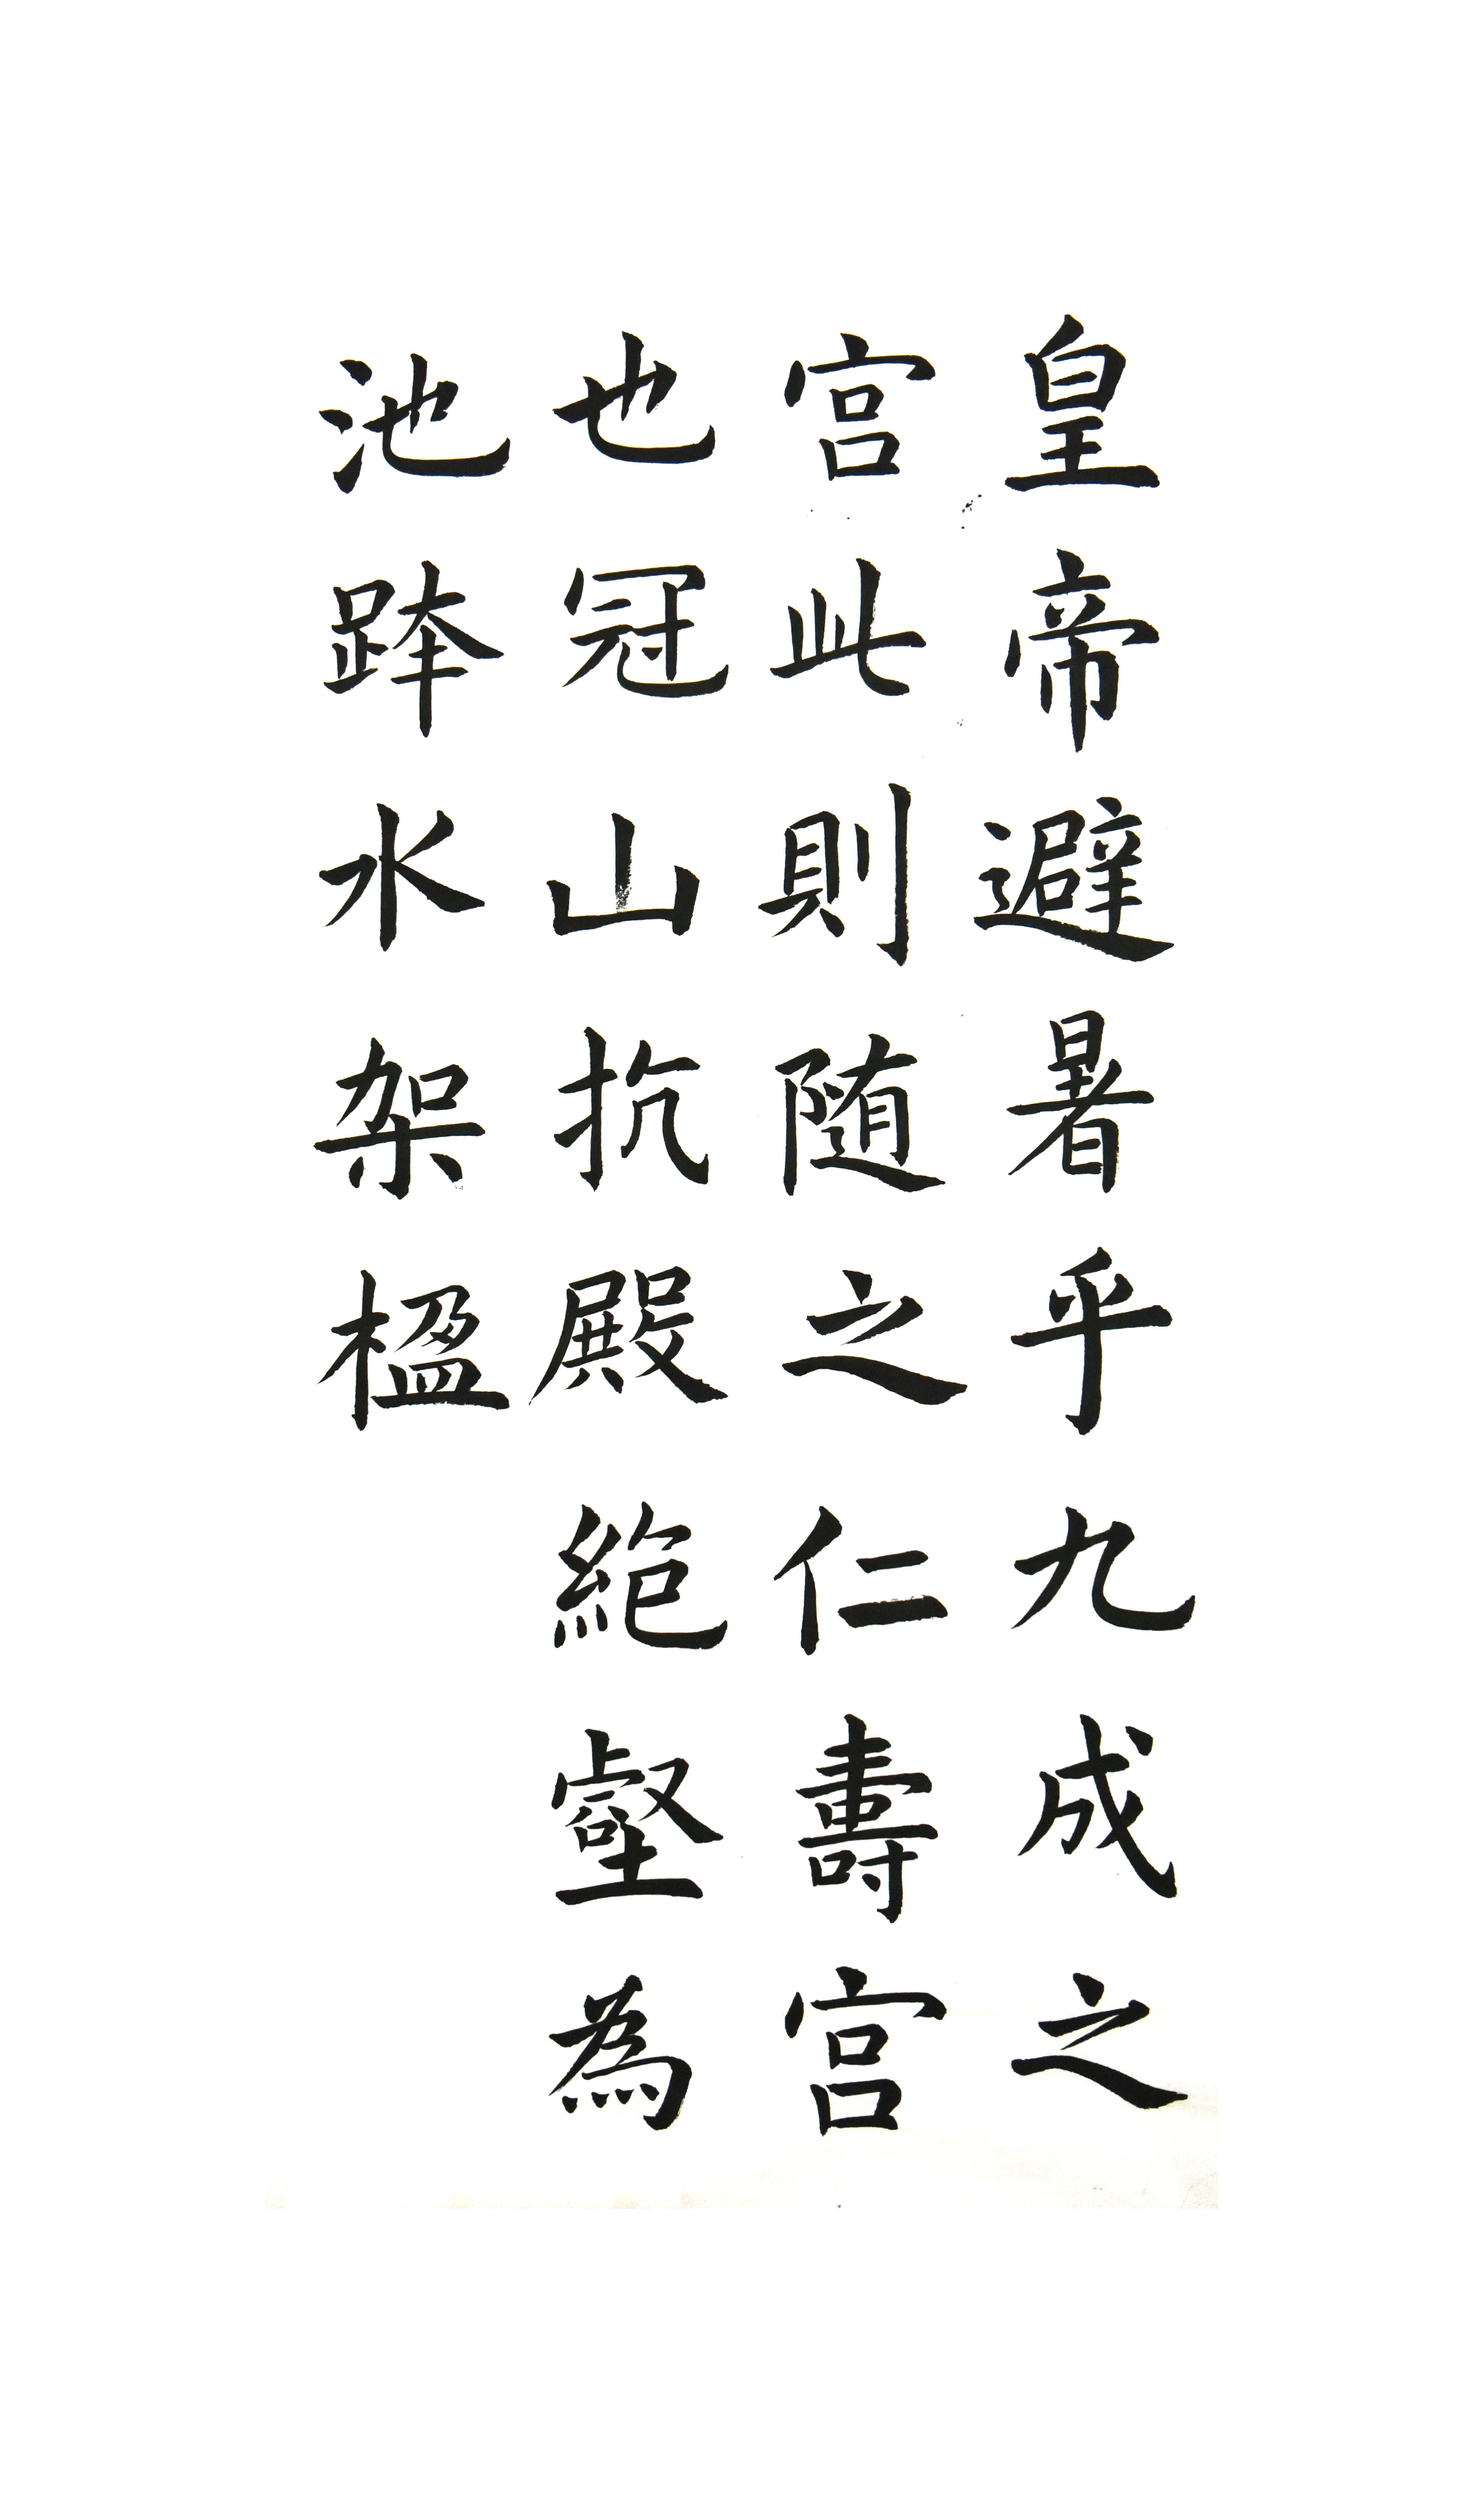 皇帝避暑乎九成之
宫此則随之仁壽宫
也冠山抗殿絕壑為
池跨水架楹